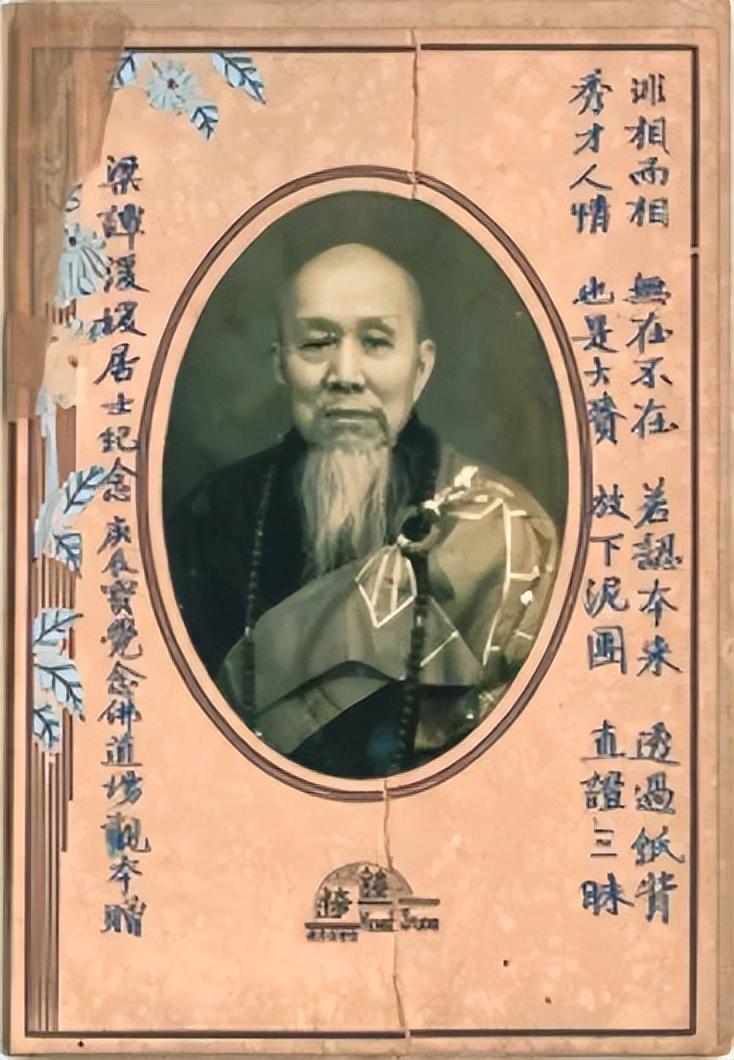 非相而相 無在不在 若認本来 透過紙背
秀才人情 也是大費 放下泥团 直證三昧
梁譚漫摆居士紀念 庚辰寶覺念佛道場觀本贈